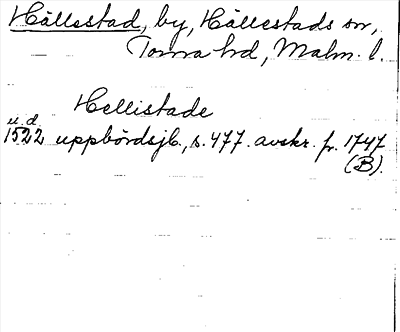 Hällestad, by, Hällestads sn,
Torna hd, Malm. l.
Hellistade
u.d.
1522 uppbördsjb., s. 477. avskr. fr. 1747
(B).